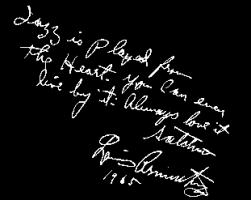 Jazz is Played from
the Heart. You can even
live by it. Always love it
Satchmo
Louis Armstrong
1965